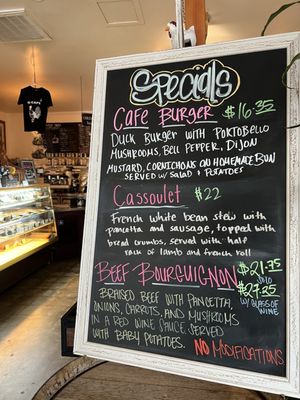 Specials
Cafe Burger $16.35
Duck Burger with Portobello
Mushrooms, Bell Pepper, Dijon
Mustard, Cornichons on Homemade Bun
Served w/ Salad + Potatoes
Cassoulet $22
French white bean stew with
pancetta and sausage, topped with
bread crumbs, served with half
rack of lamb and french roll
Beef Bourguignon $21.75
Solo
$27.25
w/ Glass of
Wine
Braised Beef with Pancetta,
Onions, Carrots, and Mushrooms
in a Red Wine Sauce. Served
with Baby Potatoes.
No Modifications